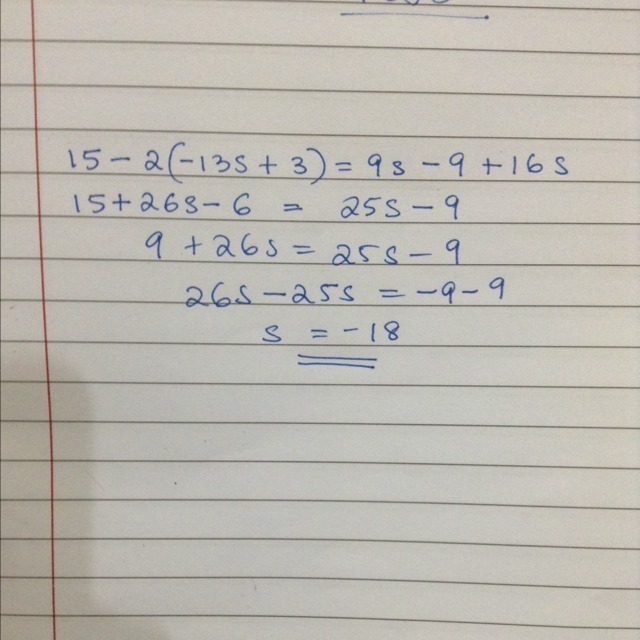 15 - 2(-13s + 3) = 9s - 9 + 16s
15 + 26s - 6 = 25s - 9
9 + 26s = 25s - 9
26s - 25s = -9 - 9
s = -18